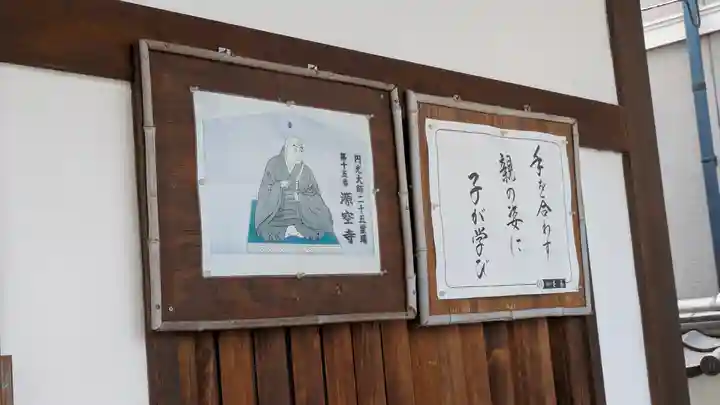 円光大師二十五霊場
第十五番 源空寺
手を合わす
親の姿に
子が学び